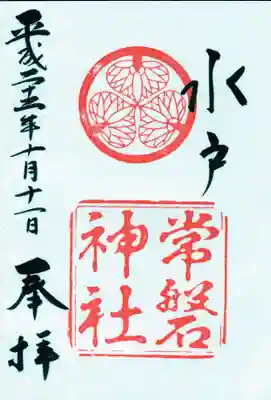 水戸
常磐
神社
奉拝
平成二十五年十月十一日